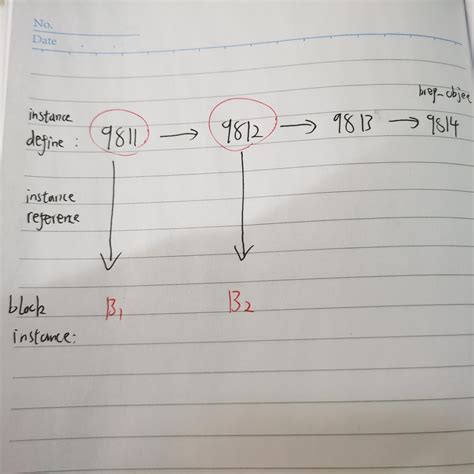 No.
Date
brep-objec
instance
define : 9811 → 9812 → 9813 → 9814
instance
reference
block B1 B2
instance: